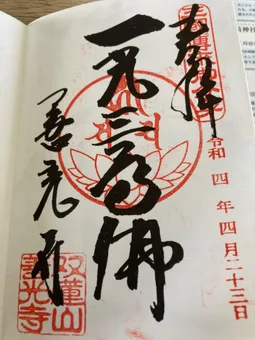 奉拝
令和四年四月二十三日
一光三尊佛
善光寺
善光寺